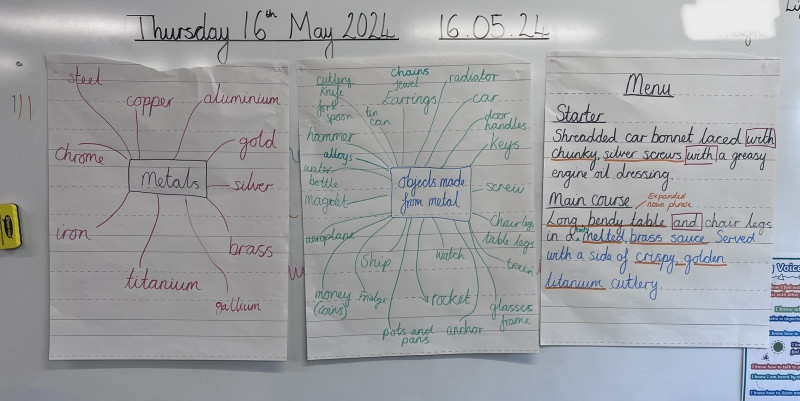 Thursday 16th May 2024 16.05.24
steel
copper
aluminium
chrome
gold
Metals
silver
iron
brass
titanium
gallium
chains
cutlery
jewel
radiator
knife
Earrings
car
fork
spoon
tin
can
door
handles
hammer
keys
alloys
water
bottle
objects made
from metal
screw
magnet
Chair legs
table legs
aeroplane
ship
watch
train
money
(coins)
rocket
glasses
frame
pots and
pans
anchor
Menu
Starter
Shreadded car bonnet laced with
chunky, silver screws with a greasy
engine oil dressing.
Expanded
noun phrase
Main course
Long, bendy table and chair legs
in a melted, brass sauce Served
with a side of crispy, golden
titanium cutlery.